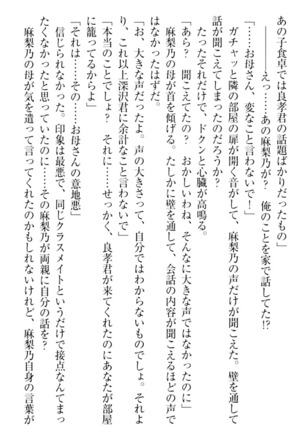 あの子食卓では良孝君の話題ばかりだったもの」
えっ……あの麻梨乃が？　俺のことを家で話してた!?
「……お母さん、変なこと言わないで！」
ガチャッと隣の部屋の扉が開く音がして、麻梨乃の声だけが聞こえた。壁を通して
話が聞こえてしまったのだろうか？
たったそれだけで、ドクンと心臓が高鳴る。
「あら？　聞こえてたの？　おかしいわね、そんなに大きな声ではなかったのに」
麻梨乃の母が首を傾げる。たしかに壁を通して、会話の内容が聞こえるほどの声で
はなかったはずだ。
「お、大きな声だったよ。声の大きさって、自分ではわからないものでしょ。それよ
り、これ以上深沢君に余計なこと言わないで」
「本当のことでしょ？　それに……せっかく、良孝君が来てくれたのにあなたが部屋
に籠ってるからよ」
「それは……その……お母さんの意地悪」
信じられなかった。印象は最悪で、同じクラスメイトというだけで接点なんてまっ
たくなかったと思っていたのに……その麻梨乃が両親に自分の話を？
麻梨乃の母が気を遣って言ってくれたのかもしれないけれど、麻梨乃自身の言葉が